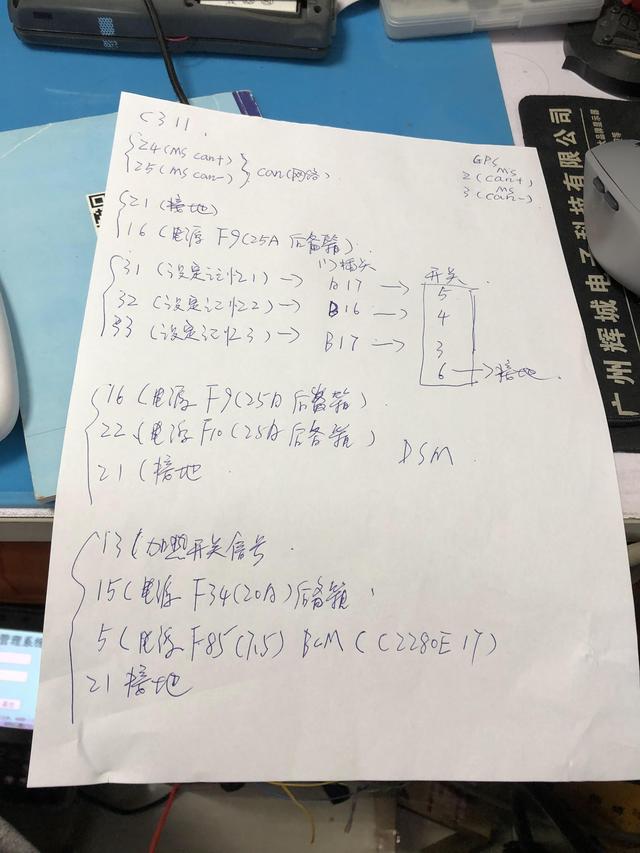 C311
24(ms can+)
25(ms can-) } can(网络)
GPS
2(ms can+)
3(ms can-)
21(接地)
16(电源 F9(25A 后备箱)
门插头
开关
31(设定记忆1) → B17 → 5
32(设定记忆2) → B16 → 4
33(设定记忆3) → B17 → 3
6 → 接地
16(电源 F9(25A 后备箱)
22(电源 F10(25A 后备箱)
21(接地
DSM
13(加热开关信号
15(电源 F34(20A)后备箱
5(电源 F85(7.5) BCM(C2280E17)
21 接地
广州辉城电子科技有限公司
管理系统